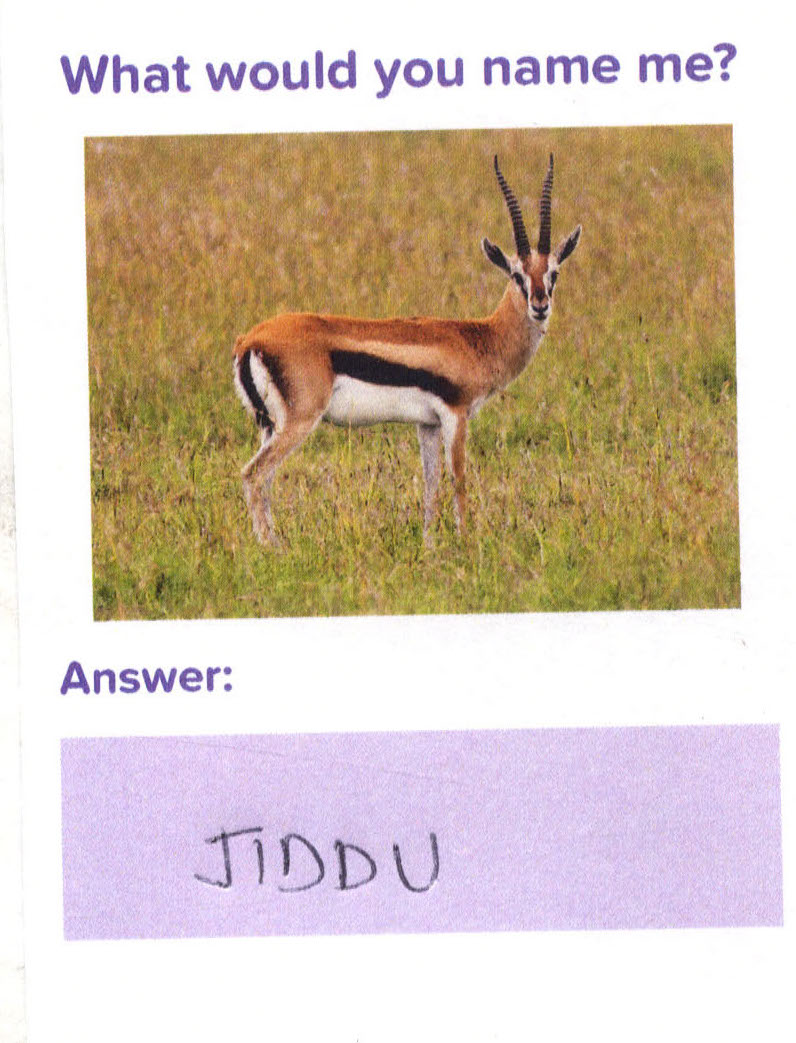 What would you name me?
Answer:
JIDDU